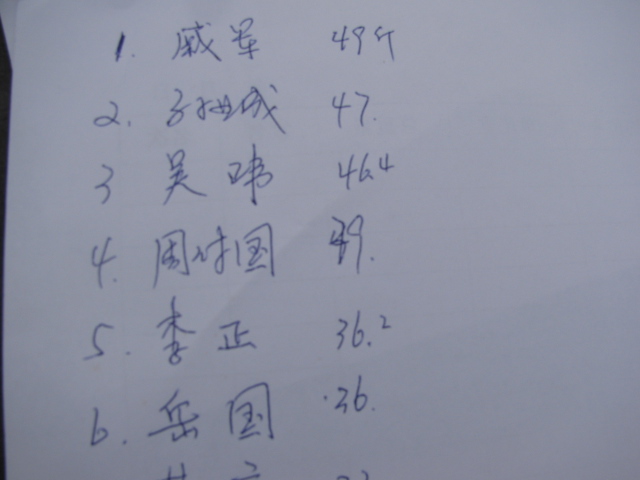 1. 戚军 49斤
2. 成 47.
3 吴玮 46.4
4. 周国 39.
5. 李正 36.2
6. 岳国 36.